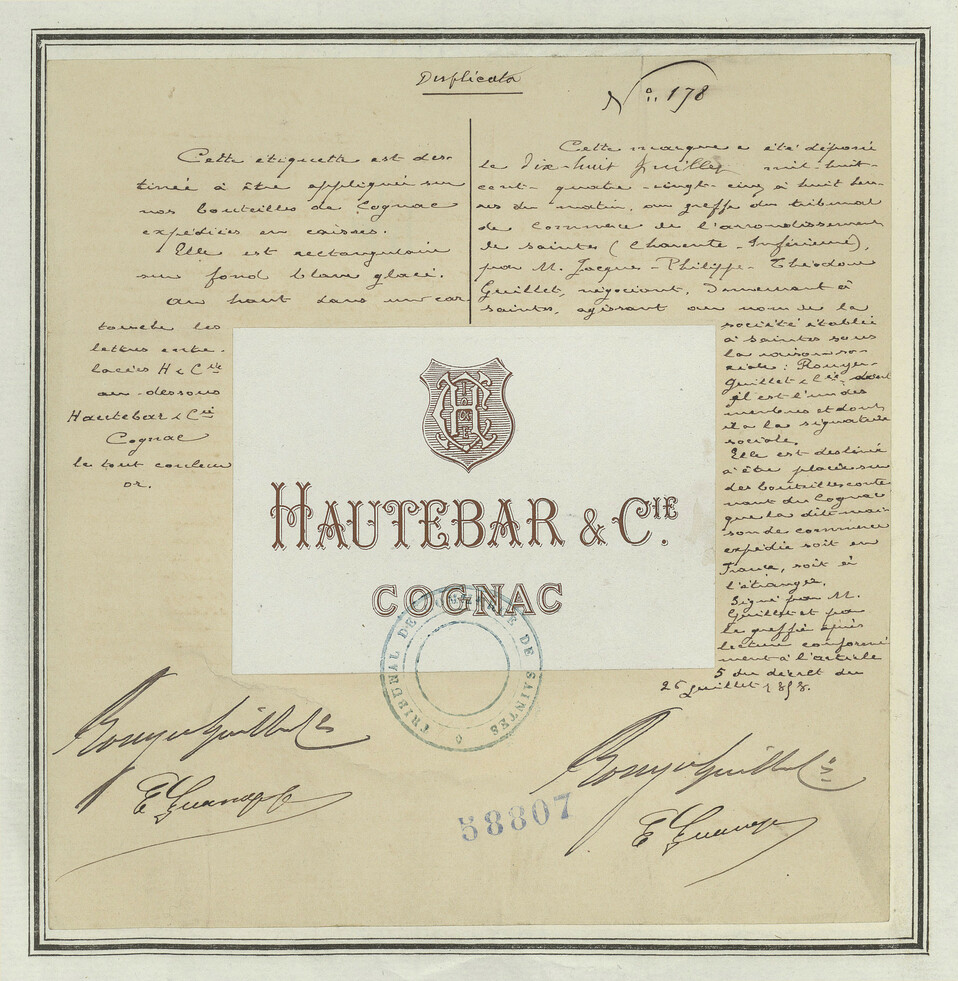 Duplicata
N° 178
Cette étiquette est des-
tinée à être appliquée sur
nos bouteilles de Cognac
expédiées en caisses.
Elle est rectangulaire
sur fond blanc glacé.
En haut dans un car-
touche les
lettres entre-
lacées H & Cie
au-dessous
Hautebar & Cie
Cognac
le tout couleur
or.
Cette marque a été déposée
le dix-huit Juillet mil-huit-
cent-quatre-vingt-cinq à huit heu-
res du matin, au greffe du tribunal
de Commerce de l'arrondissement
de Saintes (Charente-Inférieure),
par M. Jacques-Philippe-Théodore
Guillet, négociant, Demeurant à
Saintes, agissant au nom de la
société établie
à Saintes sous
la raison so-
ciale: Rouyer-
Guillet & Cie dont
il est l'un des
membres et dont
il a la signature
sociale.
Elle est destinée
à être placée sur
des bouteilles conte-
nant du Cognac
que la dite mai-
son de commerce
expédie soit en
France, soit à
l'étranger.
Signé par M.
Guillet et par
le greffier après
lecture conformé-
ment à l'article
5 du décret du
26 juillet 1858.
HC
HAUTEBAR & CIE.
COGNAC
TRIBUNAL DE COMMERCE DE SAINTES
Rouyer Guillet & Cie
Rouyer Guillet & Cie
58807